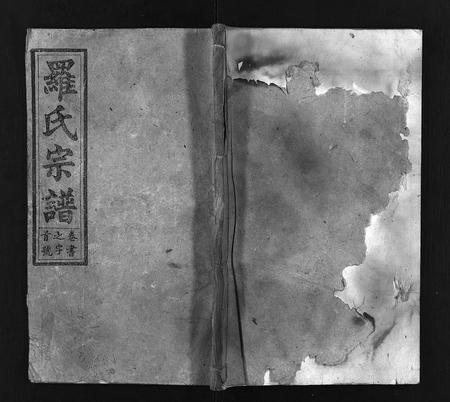 羅氏宗譜
卷之首
書字號